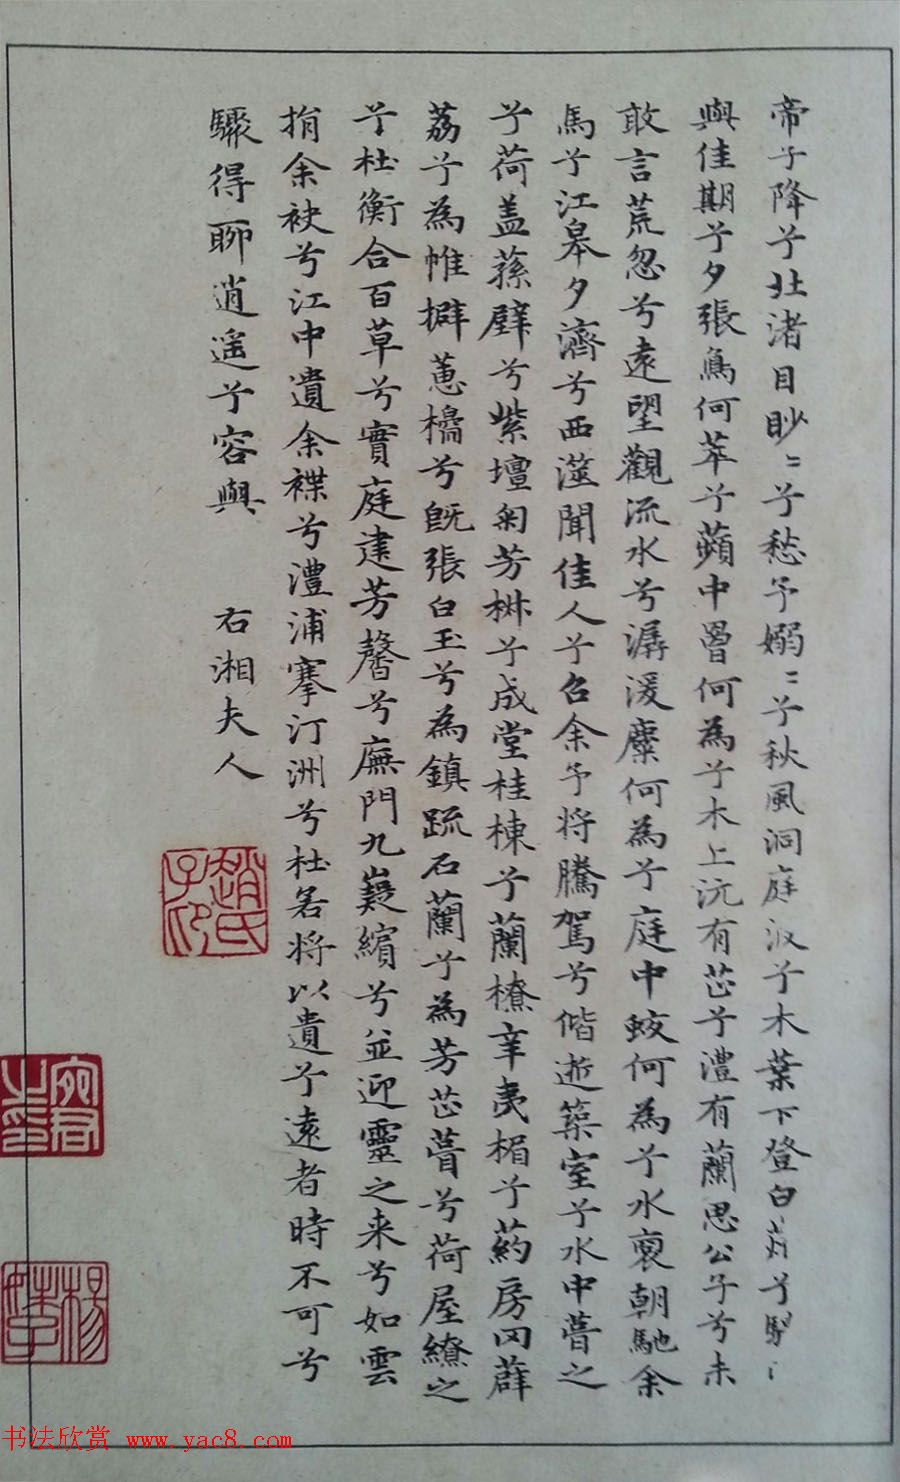 帝子降兮北渚目眇〻兮愁予嫋〻兮秋風洞庭波兮木葉下登白薠兮騁〻
與佳期兮夕張鳥何萃兮蘋中罾何為兮木上沅有芷兮澧有蘭思公子兮未
敢言荒忽兮遠望觀流水兮潺湲麋何為兮庭中蛟何為兮水裔朝馳余
馬兮江皋夕濟兮西澨聞佳人兮召余予將騰駕兮偕逝築室兮水中葺之
兮荷盖蓀壁兮紫壇匊芳椒兮成堂桂棟兮蘭橑辛夷楣兮葯房罔薜
荔兮為帷擗蕙櫋兮既張白玉兮為鎮疏石蘭兮為芳芷葺兮荷屋繚之
兮杜衡合百草兮實庭建芳馨兮廡門九嶷繽兮並迎靈之来兮如雲
捐余袂兮江中遺余褋兮澧浦搴汀洲兮杜若将以遺兮遠者時不可兮
驟得聊逍遥兮容與 右湘夫人
趙氏子印
之印
楊
书法欣赏 www.yac8.com